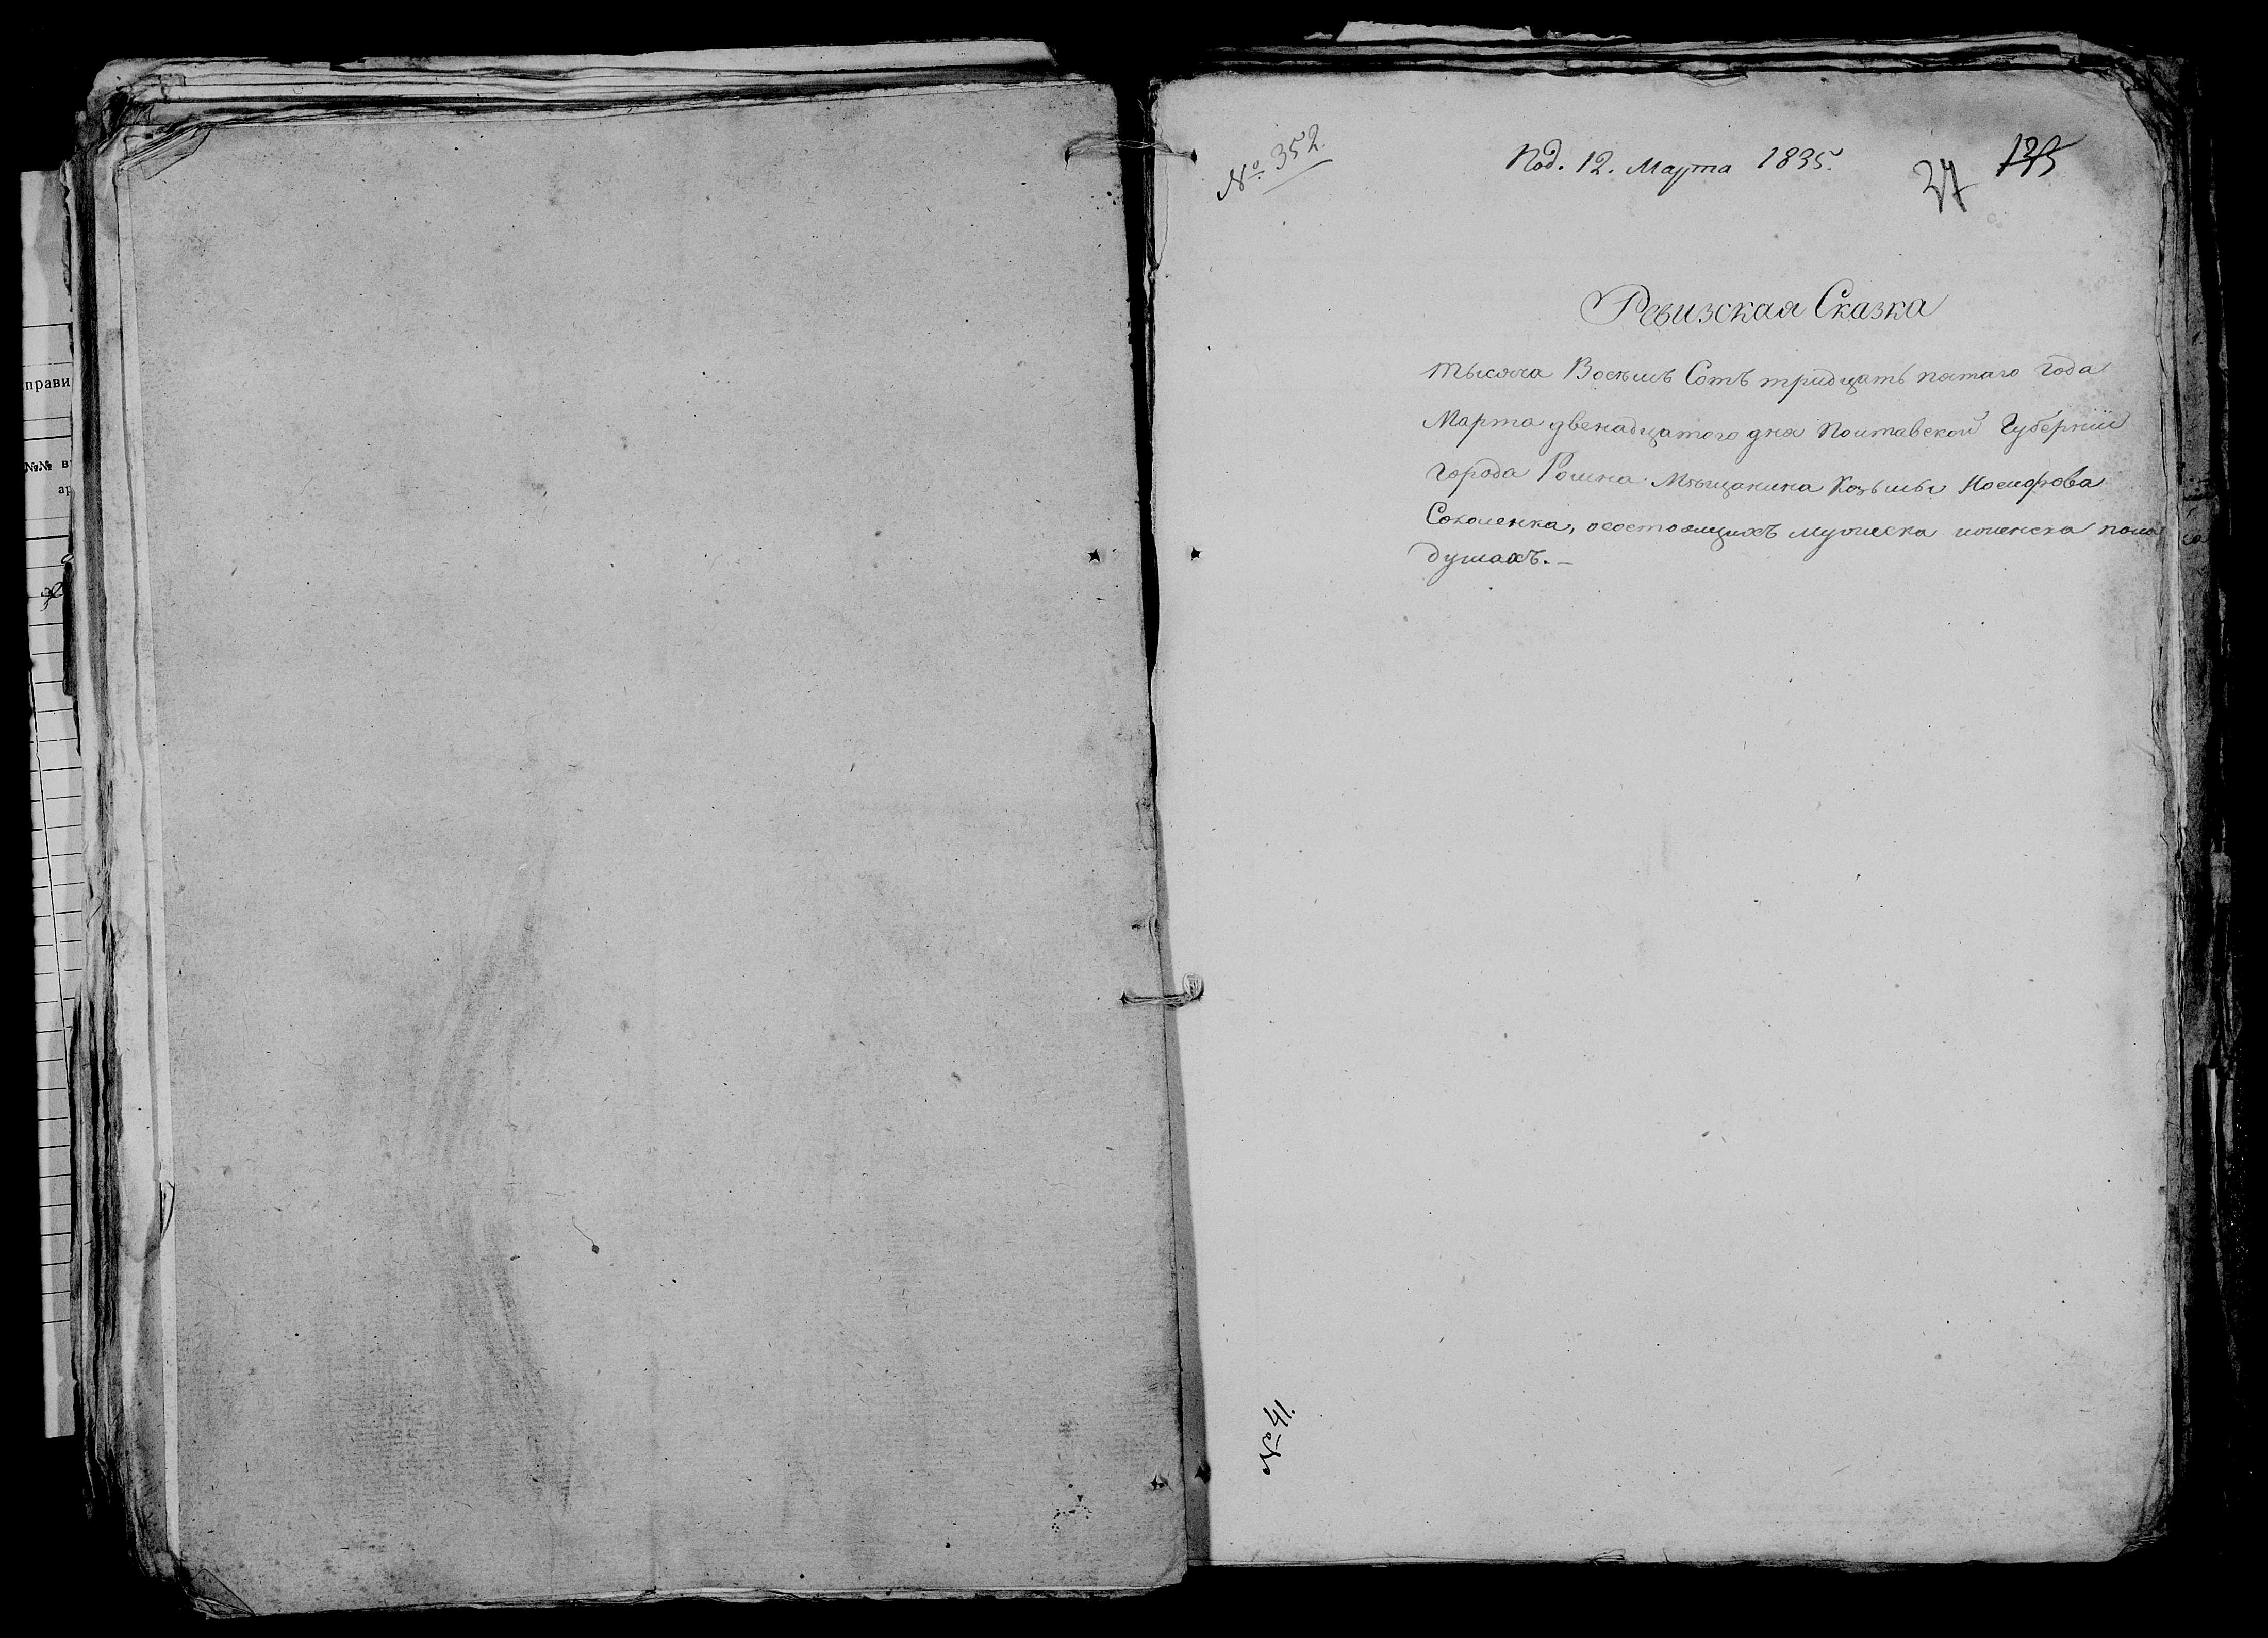 № 352.
Под. 12. Марта 1835.
27
135
Ревизская Сказка
тысяча Восѣмъ Сотъ тридцать пятаго года
Марта двенадцатого дня Полтавской Губернiи
города Ромна Мѣщанина Козьмы Иосифова
Соколенка, осостоящихъ мужеска иженска пола
душахъ. —
№ 41.
прави
№№ в
ар